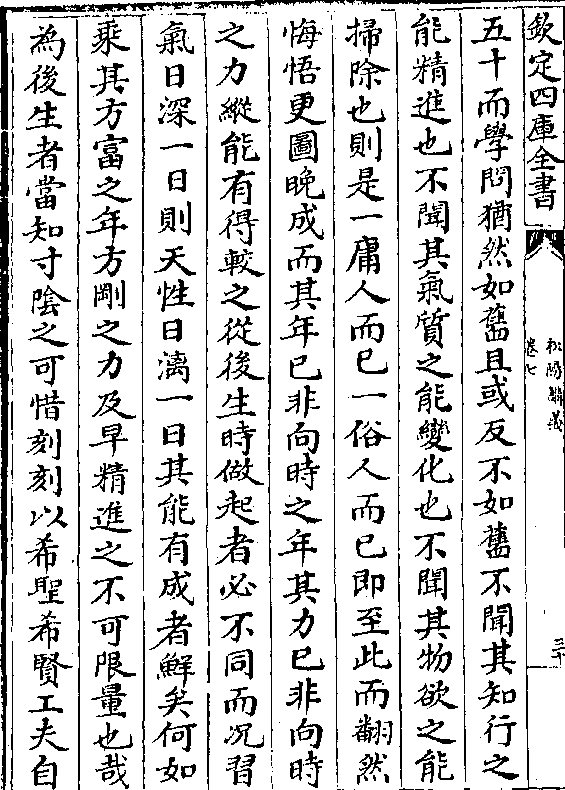 欽定四庫全書
松陽講義
卷七
三十
五十而學問猶然如舊且或反不如舊不聞其知行之
能精進也不聞其氣質之能變化也不聞其物欲之能
掃除也則是一庸人而已一俗人而已即至此而翻然
悔悟更圖晚成而其年已非向時之年其力已非向時
之力縱能有得較之從後生時做起者必不同而況習
氣日深一日則天性日漓一日其能有成者鮮矣何如
乘其方富之年方剛之力及早精進之不可限量也哉
為後生者當知寸陰之可惜刻刻以希聖希賢工夫自